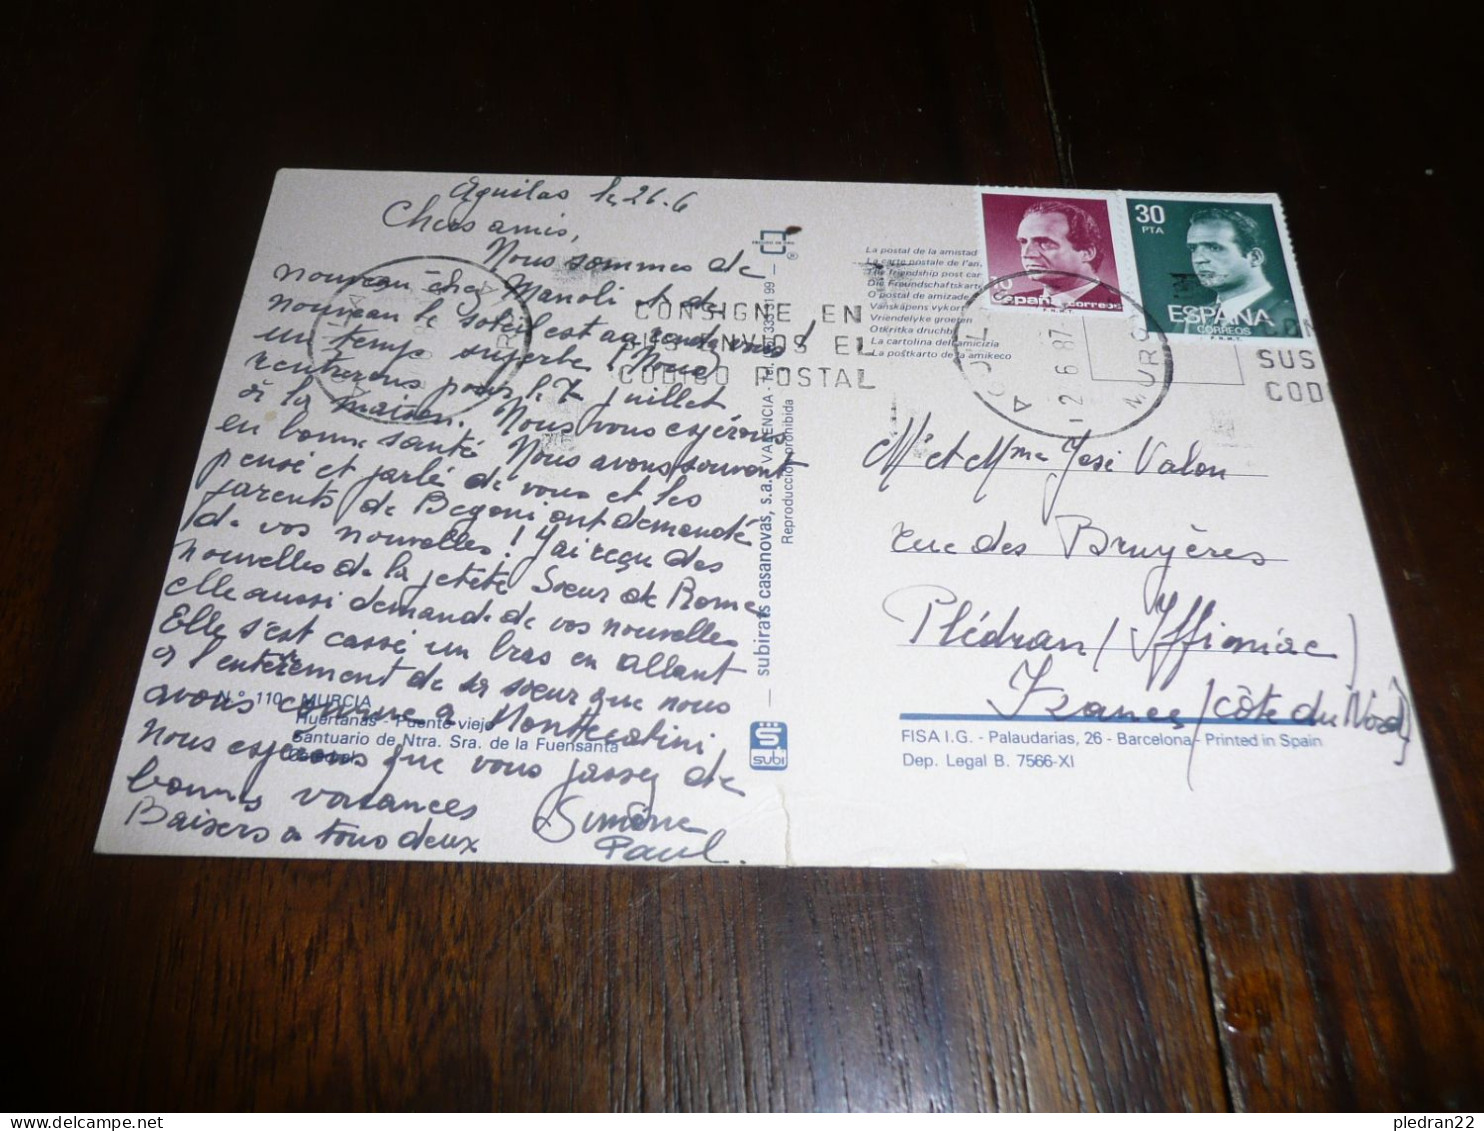 Aguilas le 26.6
Chers amis,
Nous sommes de
nouveau chez Manoli et de
nouveau le soleil est au rendez vous !
un temps superbe ! Nous
rentrerons pour le 7 juillet
à la maison. Nous vous espérons
en bonne santé. Nous avons souvent
pensé et parlé de vous et les
parents de Begoni ont demandé
de vos nouvelles ! J'ai reçu des
nouvelles de la petite Sœur de Rome
elle aussi demande de vos nouvelles
Elle s'est cassé un bras en allant
à l'enterrement de sa sœur que nous
avons connue à Montecatini,
Nous espérons que vous passez de
bonnes vacances
Baisers à tous deux
Simone
Paul.
Nº 110 MURCIA
Huertanas - Puente viejo
Santuario de Ntra. Sra. de la Fuensanta
subirats casanovas, s.a. VALENCIA
Reproducción prohibida
subi
La postal de la amistad
La carte postale de l'am
The friendship post car
Die Freundschaftskarte
O postal de amizade
Vänskäpens vykort
Vriendelyke groeten
Otkritka druchb
La cartolina dell'amicizia
La poŝtkarto de la amikeco
CONSIGNE EN
SUS ENVIOS EL
CODIGO POSTAL
España correos
30
PTA
ESPAÑA
CORREOS
F.N.M.T.
2 6 87
MURC
SUS
COD
Mr et Mme José Valon
rue des Bruyères
Plédran / Yffiniac /
France / (Côte du Nord)
FISA I.G. - Palaudarias, 26 - Barcelona - Printed in Spain
Dep. Legal B. 7566-XI
pledran22